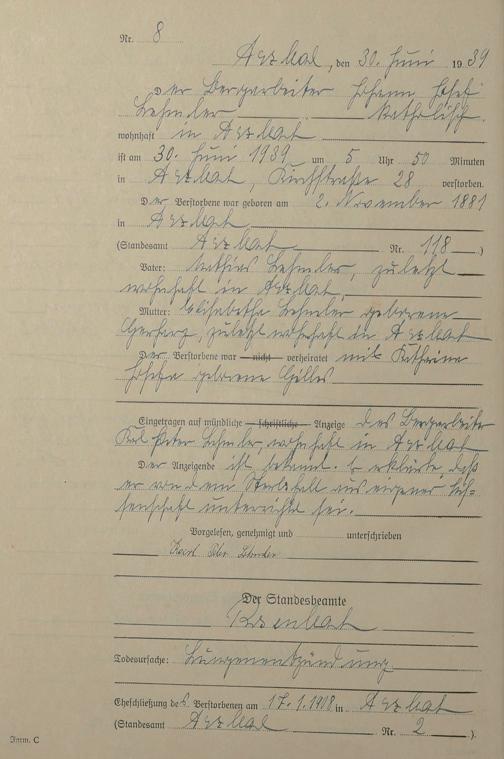 Nr. 8
Arzbal, den 30. Juni 1939
Der Bergarbeiter Johann Josef
Lehmler katholisch
wohnhaft in Arzbal
ist am 30. Juni 1939 um 5 Uhr 50 Minuten
in Arzbal, Kirchstraße 28 verstorben.
Der Verstorbene war geboren am 2. November 1881
in Arzbal
(Standesamt Arzbal Nr. 118)
Vater: Mathias Lehmler, zuletzt
wohnhaft in Arzbal,
Mutter: Elisabetha Lehmler geborene
zuletzt wohnhaft in Arzbal
Der Verstorbene war nicht verheiratet mit Katharina
Josefa geborene Gilles
Eingetragen auf mündliche schriftliche Anzeige des Bergarbeiter
Karl Peter Lehmler, wohnhaft in Arzbal
Der Anzeigende ist bekannt. Er erklärte, daß
er von dem Sterbefall aus eigener Wis=
senschaft unterrichtet sei.
Vorgelesen, genehmigt und unterschrieben
Karl Peter Lehmler
Der Standesbeamte
Todesursache: Lungenentzündung
Eheschließung des Verstorbenen am 17.1.1908 in Arzbal
(Standesamt Arzbal Nr. 2).
Form. C